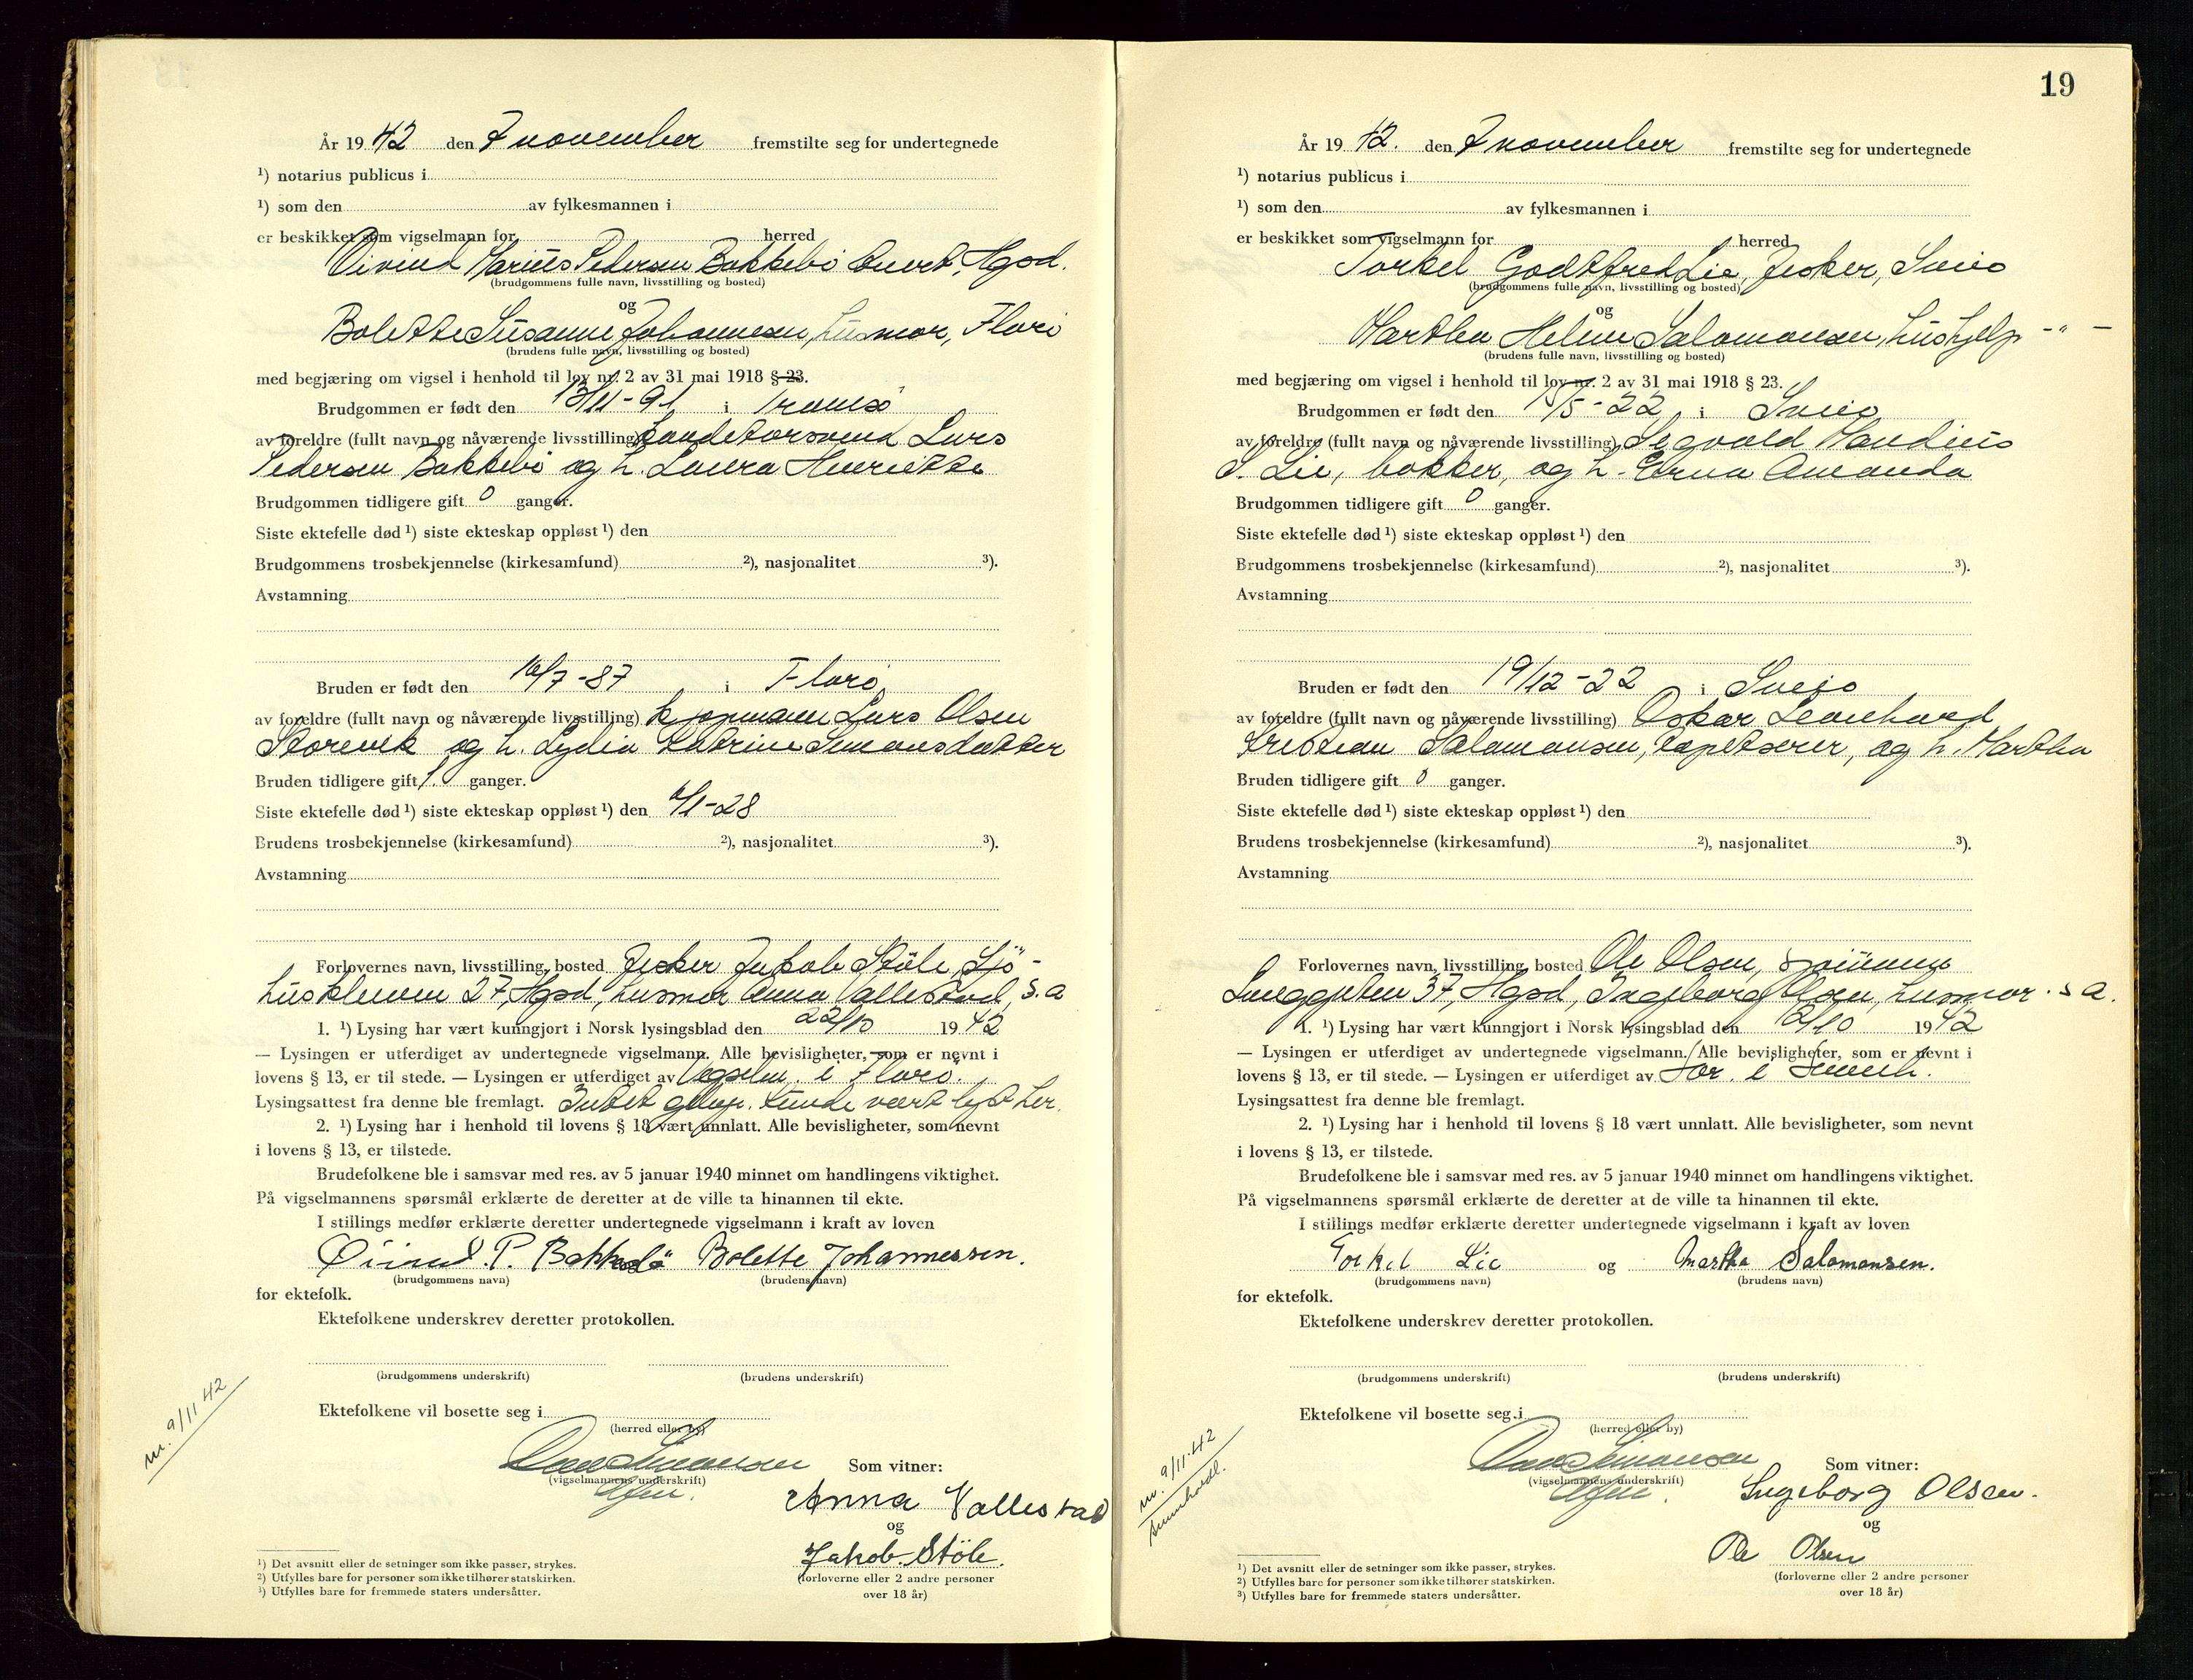 År 19 42 den 7 november fremstilte seg for undertegnede
¹) notarius publicus i
¹) som den av fylkesmannen i
er beskikket som vigselmann for herred
Øivind Marius Pedersen Bakkebö Hgsd.
(brudgommens fulle navn, livsstilling og bosted)
og
Bolette Susanne Johannesen, husmor, Florö
(brudens fulle navn, livsstilling og bosted)
med begjæring om vigsel i henhold til lov nr. 2 av 31 mai 1918 § 23.
Brudgommen er født den 13/11-91 i Tromsö
av foreldre (fullt navn og nåværende livsstilling) Lars
Pedersen Bakkebö og h. Laura Henriette
Brudgommen tidligere gift 0 ganger.
Siste ektefelle død ¹) siste ekteskap oppløst ¹) den
Brudgommens trosbekjennelse (kirkesamfund) ²), nasjonalitet ³).
Avstamning
Bruden er født den 16/7-87 i Florö
av foreldre (fullt navn og nåværende livsstilling) kjøpmann Lars Olsen
Storevik og h. Lydia Katrine Simonsdatter
Bruden tidligere gift 1 ganger.
Siste ektefelle død ¹) siste ekteskap oppløst ¹) den 6/1-28
Brudens trosbekjennelse (kirkesamfund) ²), nasjonalitet ³).
Avstamning
Forlovernes navn, livsstilling, bosted fisker Jakob Stöle, Sjö-
huskleven 27, Hgsd, husmor Anna Vallestad, s.a
1. ¹) Lysing har vært kunngjort i Norsk lysingsblad den 22/10 19 42
— Lysingen er utferdiget av undertegnede vigselmann. Alle bevisligheter, som er nevnt i
lovens § 13, er til stede. — Lysingen er utferdiget av Vigselm. i Florö.
Lysingsattest fra denne ble fremlagt. Intet kunde vært lyst her.
2. ¹) Lysing har i henhold til lovens § 18 vært unnlatt. Alle bevisligheter, som nevnt
i lovens § 13, er tilstede.
Brudefolkene ble i samsvar med res. av 5 januar 1940 minnet om handlingens viktighet.
På vigselmannens spørsmål erklærte de deretter at de ville ta hinannen til ekte.
I stillings medfør erklærte deretter undertegnede vigselmann i kraft av loven
Öivind P. Bakkebö Bolette Johannessen.
(brudgommens navn) (brudens navn)
for ektefolk.
Ektefolkene underskrev deretter protokollen.
(brudgommens underskrift) (brudens underskrift)
m. 9/11 42
Ektefolkene vil bosette seg i
(herred eller by)
Simonsen Som vitner:
(vigselmannens underskrift)
Anna Vallestad
og
Jakob Stöle.
(forloverne eller 2 andre personer
over 18 år)
¹) Det avsnitt eller de setninger som ikke passer, strykes.
²) Utfylles bare for personer som ikke tilhører statskirken.
³) Utfylles bare for fremmede staters undersåtter.
19
År 19 42. den 7 november fremstilte seg for undertegnede
¹) notarius publicus i
¹) som den av fylkesmannen i
er beskikket som vigselmann for herred
Torkel Godtfred Lie, fisker, Sveio
(brudgommens fulle navn, livsstilling og bosted)
og
Martha Helene Salomonsen, hushjelp -"-
(brudens fulle navn, livsstilling og bosted)
med begjæring om vigsel i henhold til lov nr. 2 av 31 mai 1918 § 23.
Brudgommen er født den 15/5-22 i Sveio
av foreldre (fullt navn og nåværende livsstilling) Segvald Mandius
S. Lie, bøkker, og h. Erna Amanda
Brudgommen tidligere gift 0 ganger.
Siste ektefelle død ¹) siste ekteskap oppløst ¹) den
Brudgommens trosbekjennelse (kirkesamfund) ²), nasjonalitet ³).
Avstamning
Bruden er født den 19/12-22 i Sveio
av foreldre (fullt navn og nåværende livsstilling) Oskar Leonhard
Kristian Salomonsen, tapetserer, og h. Martha
Bruden tidligere gift 0 ganger.
Siste ektefelle død ¹) siste ekteskap oppløst ¹) den
Brudens trosbekjennelse (kirkesamfund) ²), nasjonalitet ³).
Avstamning
Forlovernes navn, livsstilling, bosted Ole Olsen,
37, Hgsd, Ingeborg Olsen, husmor. s a.
1. ¹) Lysing har vært kunngjort i Norsk lysingsblad den /10 19 42
— Lysingen er utferdiget av undertegnede vigselmann. Alle bevisligheter, som er nevnt i
lovens § 13, er til stede. — Lysingen er utferdiget av Sor. i
Lysingsattest fra denne ble fremlagt.
2. ¹) Lysing har i henhold til lovens § 18 vært unnlatt. Alle bevisligheter, som nevnt
i lovens § 13, er tilstede.
Brudefolkene ble i samsvar med res. av 5 januar 1940 minnet om handlingens viktighet.
På vigselmannens spørsmål erklærte de deretter at de ville ta hinannen til ekte.
I stillings medfør erklærte deretter undertegnede vigselmann i kraft av loven
Torkel Lie og Martha Salomonsen.
(brudgommens navn) (brudens navn)
for ektefolk.
Ektefolkene underskrev deretter protokollen.
(brudgommens underskrift) (brudens underskrift)
Ektefolkene vil bosette seg i
(herred eller by)
m. 9/11-42
Simonsen Som vitner:
(vigselmannens underskrift)
Ingeborg Olsen.
og
Ole Olsen
(forloverne eller 2 andre personer
over 18 år)
¹) Det avsnitt eller de setninger som ikke passer, strykes.
²) Utfylles bare for personer som ikke tilhører statskirken.
³) Utfylles bare for fremmede staters undersåtter.